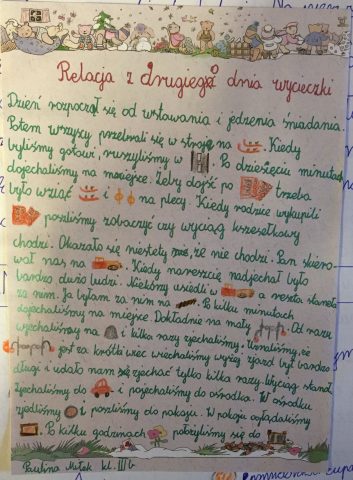 Relacja z drugiego dnia wycieczki
Dzień rozpoczął się od wstawania i jedzenia śniadania.
Potem wszyscy przebrali się w stroje na Kiedy
byliśmy gotowi, ruszyliśmy w . Po dziesięciu minutach
dojechaliśmy na miejsce. Żeby dojść po trzeba
było wziąć i na plecy. Kiedy rodzice wykupili
poszliśmy zobaczyć czy wyciąg krzesełkowy
chodzi. Okazało się niestety nie, że nie chodzi. Pan skiero-
wał nas na . Kiedy nareszcie nadjechał było
bardzo dużo ludzi. Niektórzy usiedli w a reszta stanęła
za nim. Ja byłam za nim na . Po kilku minutach
dojechaliśmy na miejsce. Dokładnie na mały . Od razu
wjechaliśmy na i kilka razy zjechaliśmy. Uznaliśmy, że
jest za krótki więc wjechaliśmy wyżej zjazd był bardzo
długi i udało nam się zjechać tylko kilka razy. Wyciąg stanął.
Zjechaliśmy do i pojechaliśmy do ośrodka. W ośrodku
zjedliśmy i poszliśmy do pokoju. W pokoju oglądaliśmy
. Po kilku godzinach położyliśmy się do
Paulina Miłek kl. III b